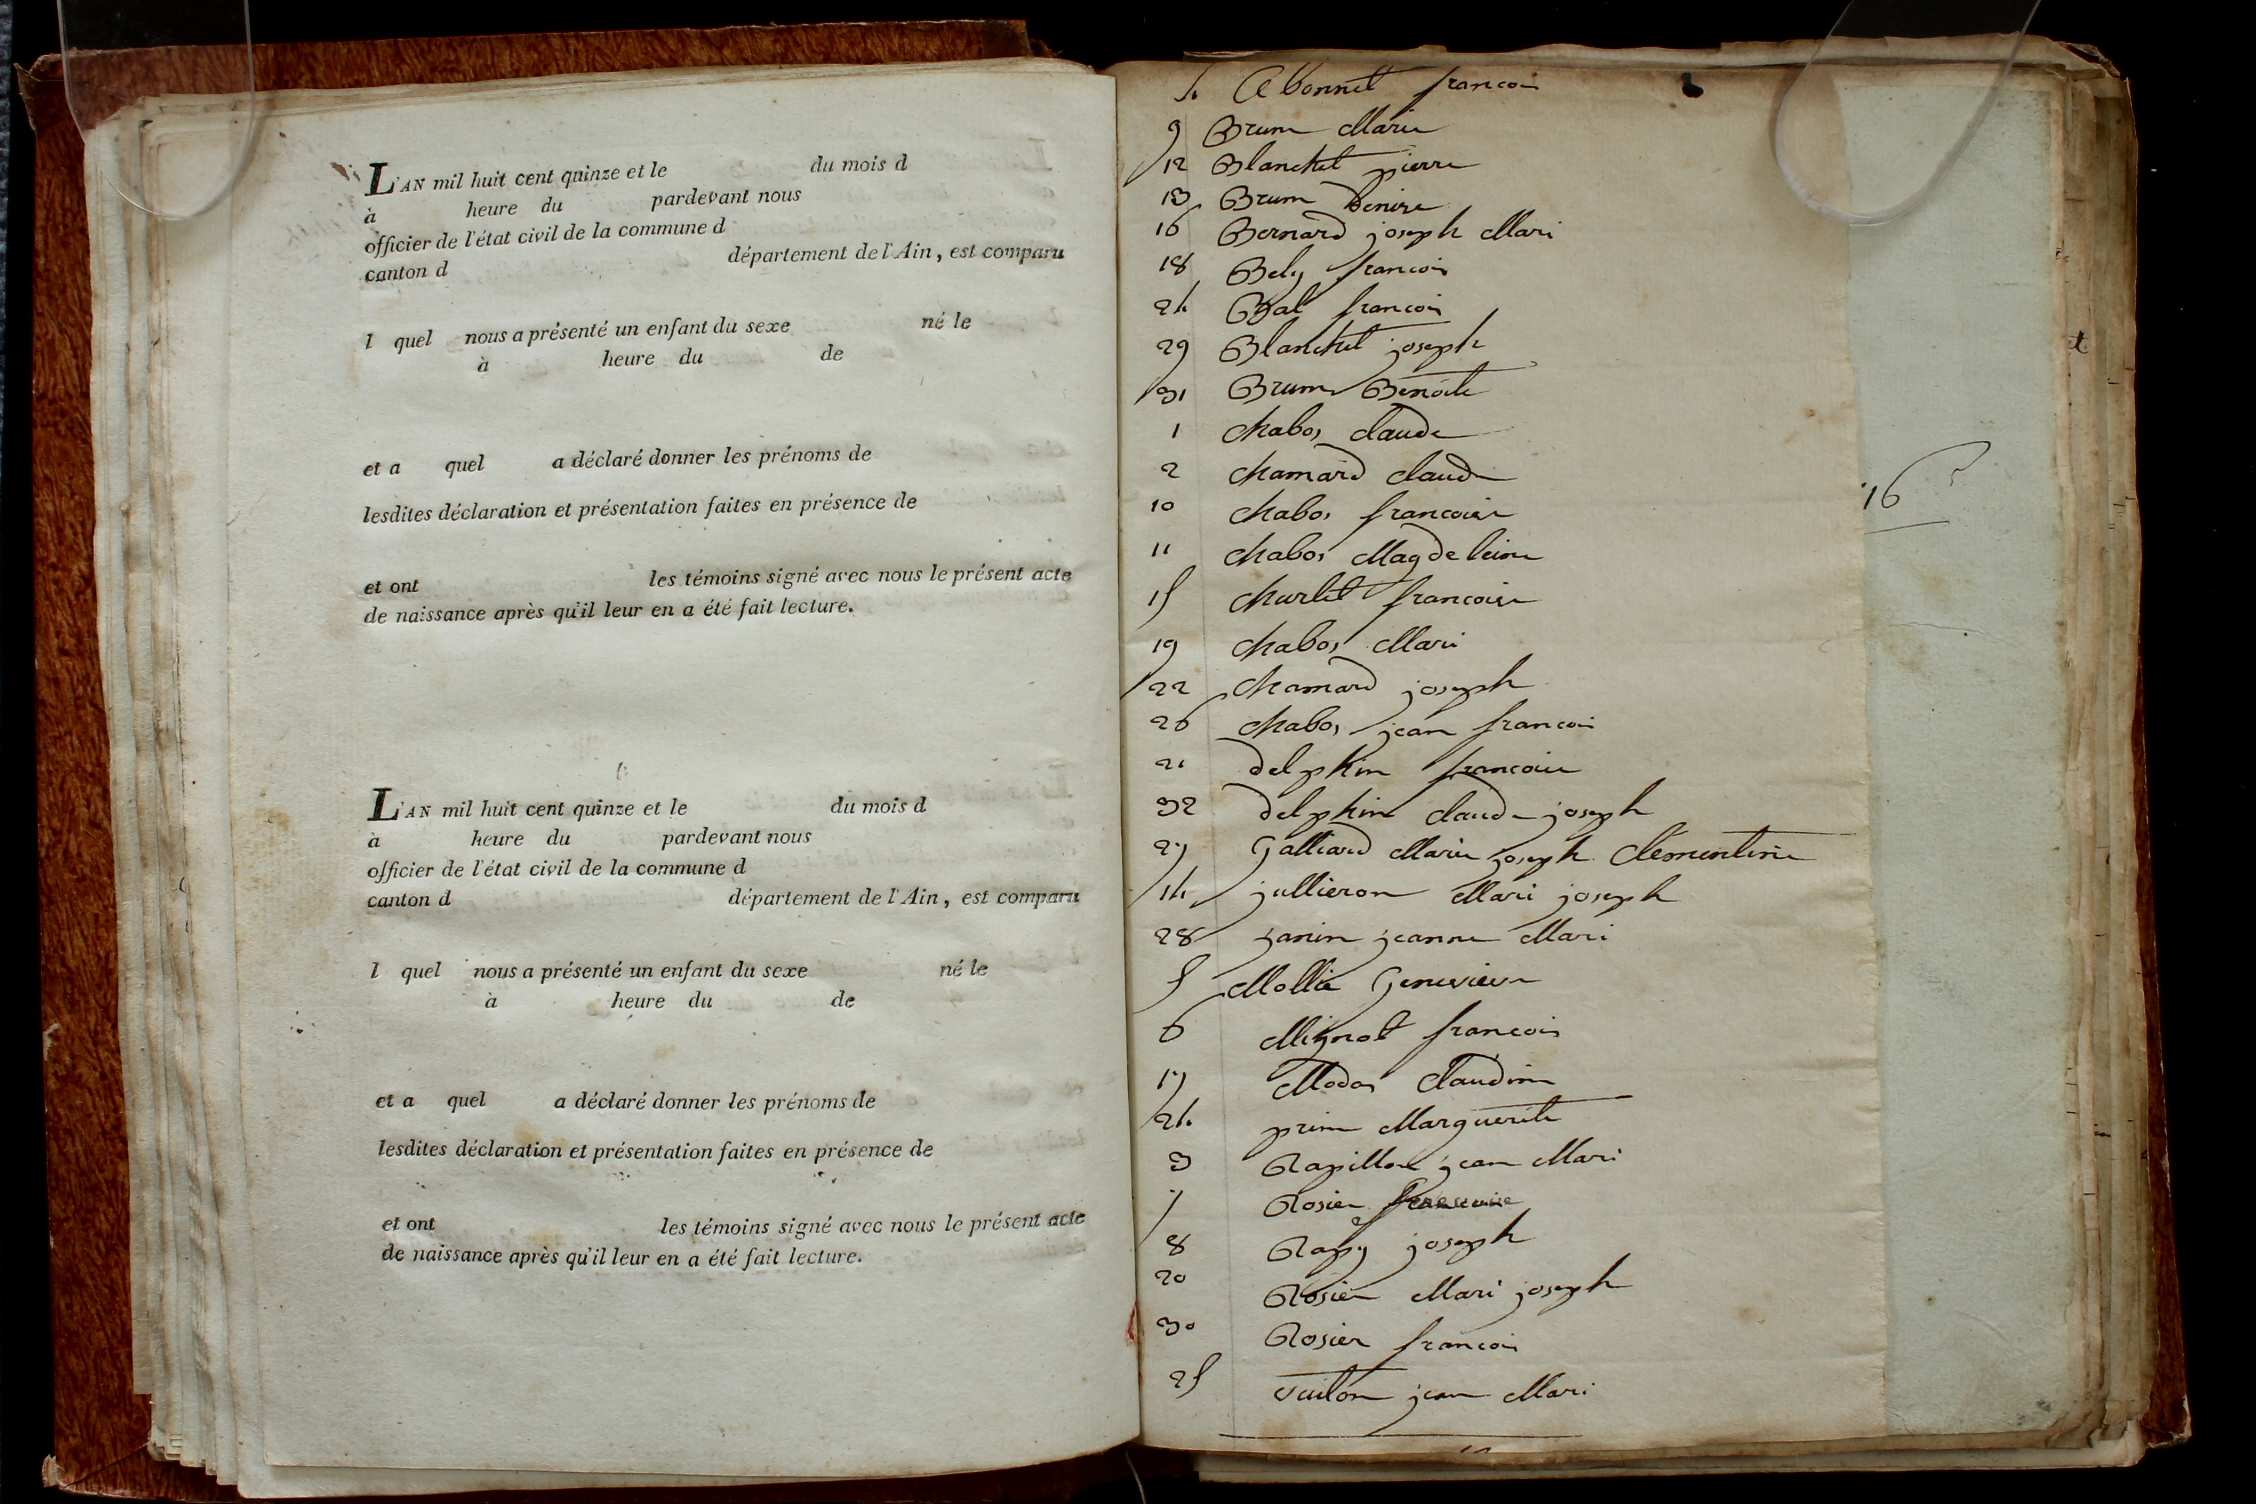 L'AN mil huit cent quinze et le du mois d
à heure du pardevant nous
officier de l'état civil de la commune d
canton d département de l'Ain, est comparu
l quel nous a présenté un enfant du sexe né le
à heure du de
et a quel a déclaré donner les prénoms de
lesdites déclaration et présentation faites en présence de
et ont les témoins signé avec nous le présent acte
de naissance après qu'il leur en a été fait lecture.
L'AN mil huit cent quinze et le du mois d
à heure du pardevant nous
officier de l'état civil de la commune d
canton d département de l'Ain, est comparu
l quel nous a présenté un enfant du sexe né le
à heure du de
et a quel a déclaré donner les prénoms de
lesdites déclaration et présentation faites en présence de
et ont les témoins signé avec nous le présent acte
de naissance après qu'il leur en a été fait lecture.
4 Abonnel francoi
9 Brun Marie
12 Blanchet pierre
13 Brun Denise
16 Bernard joseph Mari
18 Bely francois
24 Bal francoi
29 Blanchet joseph
31 Brun Benoite
1 chabos claude
2 chamard claude
10 chabos francoise
11 chabos Magdeleine
15 charlet francoise
19 chabos Mari
22 chamard joseph
26 chabos jean francoi
21 delphin francoise
32 delphin claude joseph
27 Galliard Marie joseph Clémentine
14 jullieron Mari joseph
28 janin jeanne Mari
5 Mollie Genevieve
6 Mignot francois
17 Modas Claudine
24 prin Marguerite
3 Rapillon jean Mari
7 Rosier francoise
8 Rapy joseph
20 Rosier Mari joseph
30 Rosier francoi
25 vuiton jean Mari
16